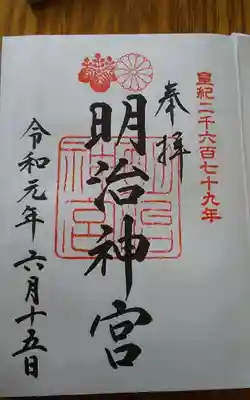 皇紀二千六百七十九年
奉拝
明治神宮
令和元年 六月十五日